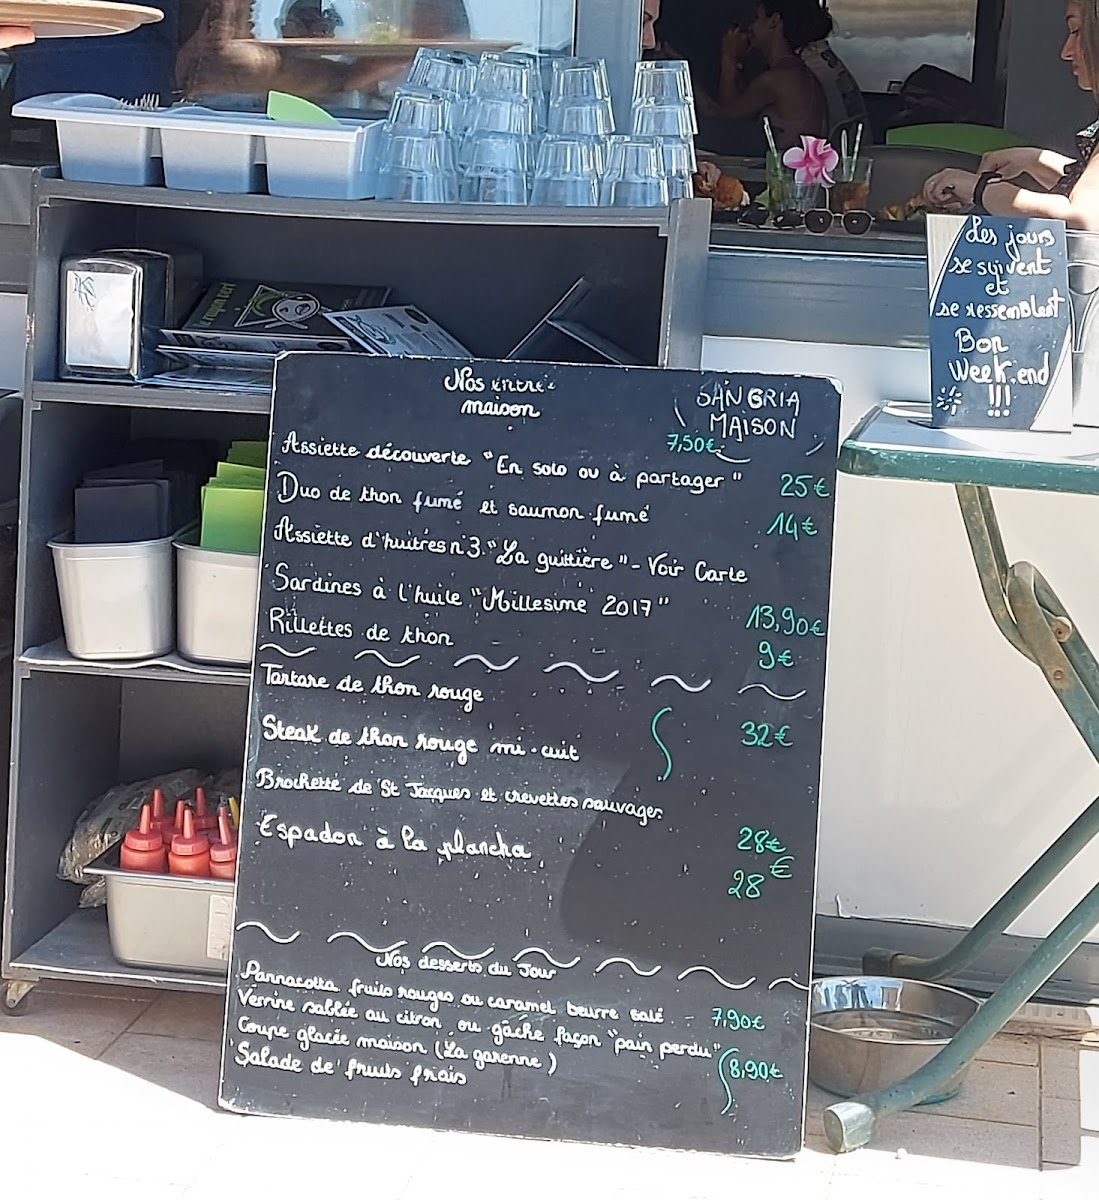 Les jours
se suivent
et
se ressemblent
Bon
Week.end
!!!
Nos entrée
maison
SANGRIA
MAISON
7,50€
Assiette découverte "En solo ou à partager" 25€
Duo de thon fumé et saumon fumé 14€
Assiette d'huitres n°3 "La guittière" - Voir Carte
Sardines à l'huile "Millesime 2017" 13,90€
Rillettes de thon 9€
Tartare de thon rouge
Steak de thon rouge mi-cuit 32€
Brochette de St Jacques et crevettes sauvages 28€
Espadon à la plancha 28€
Nos desserts du Jour
Pannacotta fruits rouges ou caramel beurre salé - 7,90€
Verrine sablée au citron ou gâche façon "pain perdu"
Coupe glacée maison (La garenne) 8,90€
Salade de fruits frais